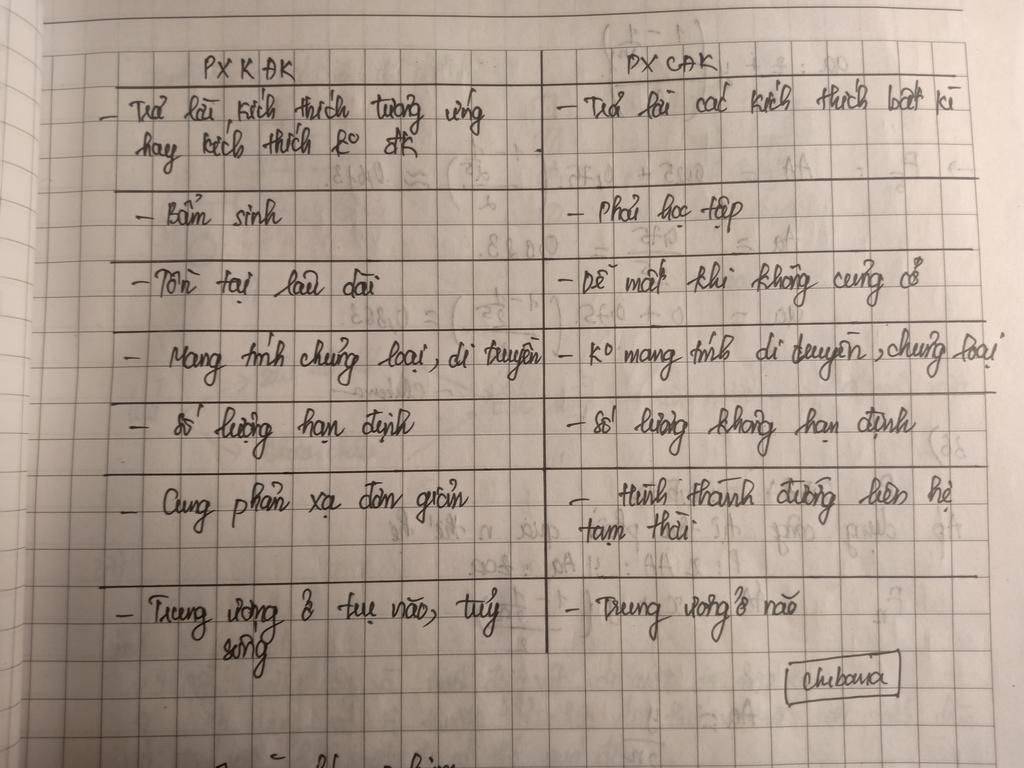 PXKĐK
PXCĐK
- Trả lời kích thích tương ứng
hay kích thích ko đk
- Trả lời các kích thích bất kì
- Bẩm sinh
- Phải học tập
- Tồn tại lâu dài
- Dễ mất khi không củng cố
- Mang tính chủng loại, di truyền
- Ko mang tính di truyền, chủng loại
- Số lượng hạn định
- Số lượng không hạn định
- Cung phản xạ đơn giản
- Hình thành đường liên hệ
tạm thời
- Trung ương ở trụ não, tuỷ
sống
- Trung ương ở não